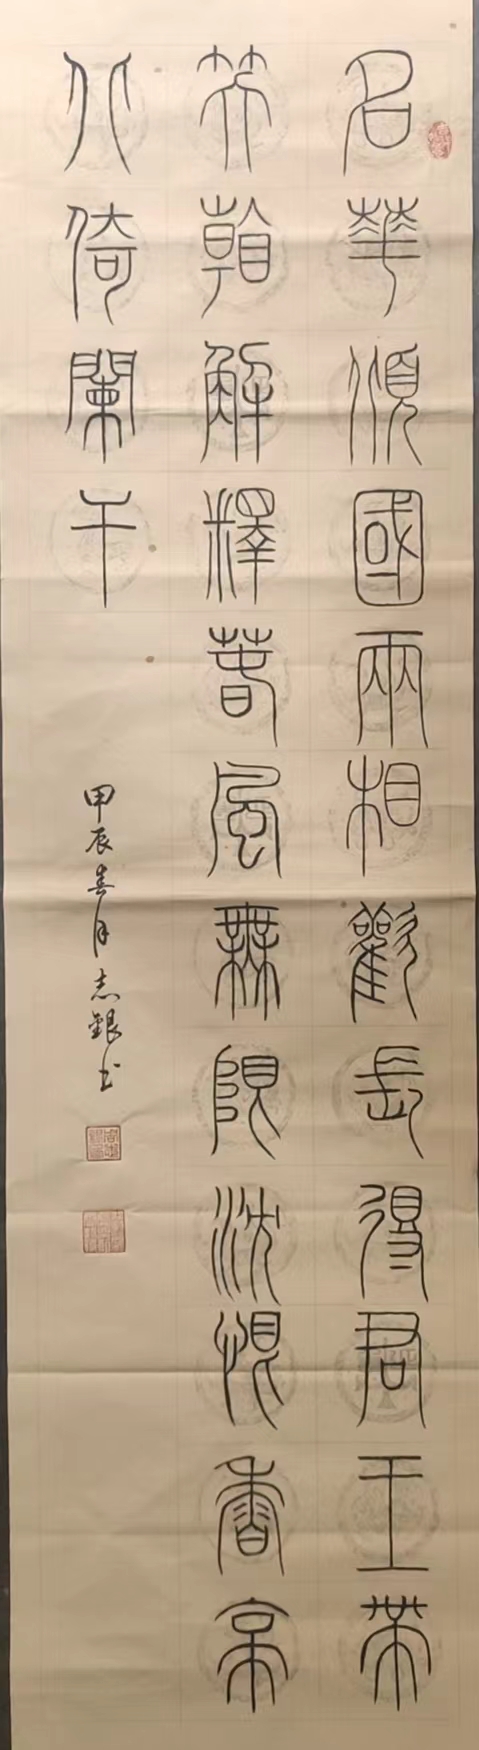 名華傾國兩相歡長得君王帶
笑看解釋春風無限沈恨香亭
北倚闌干
甲辰春月志銀书